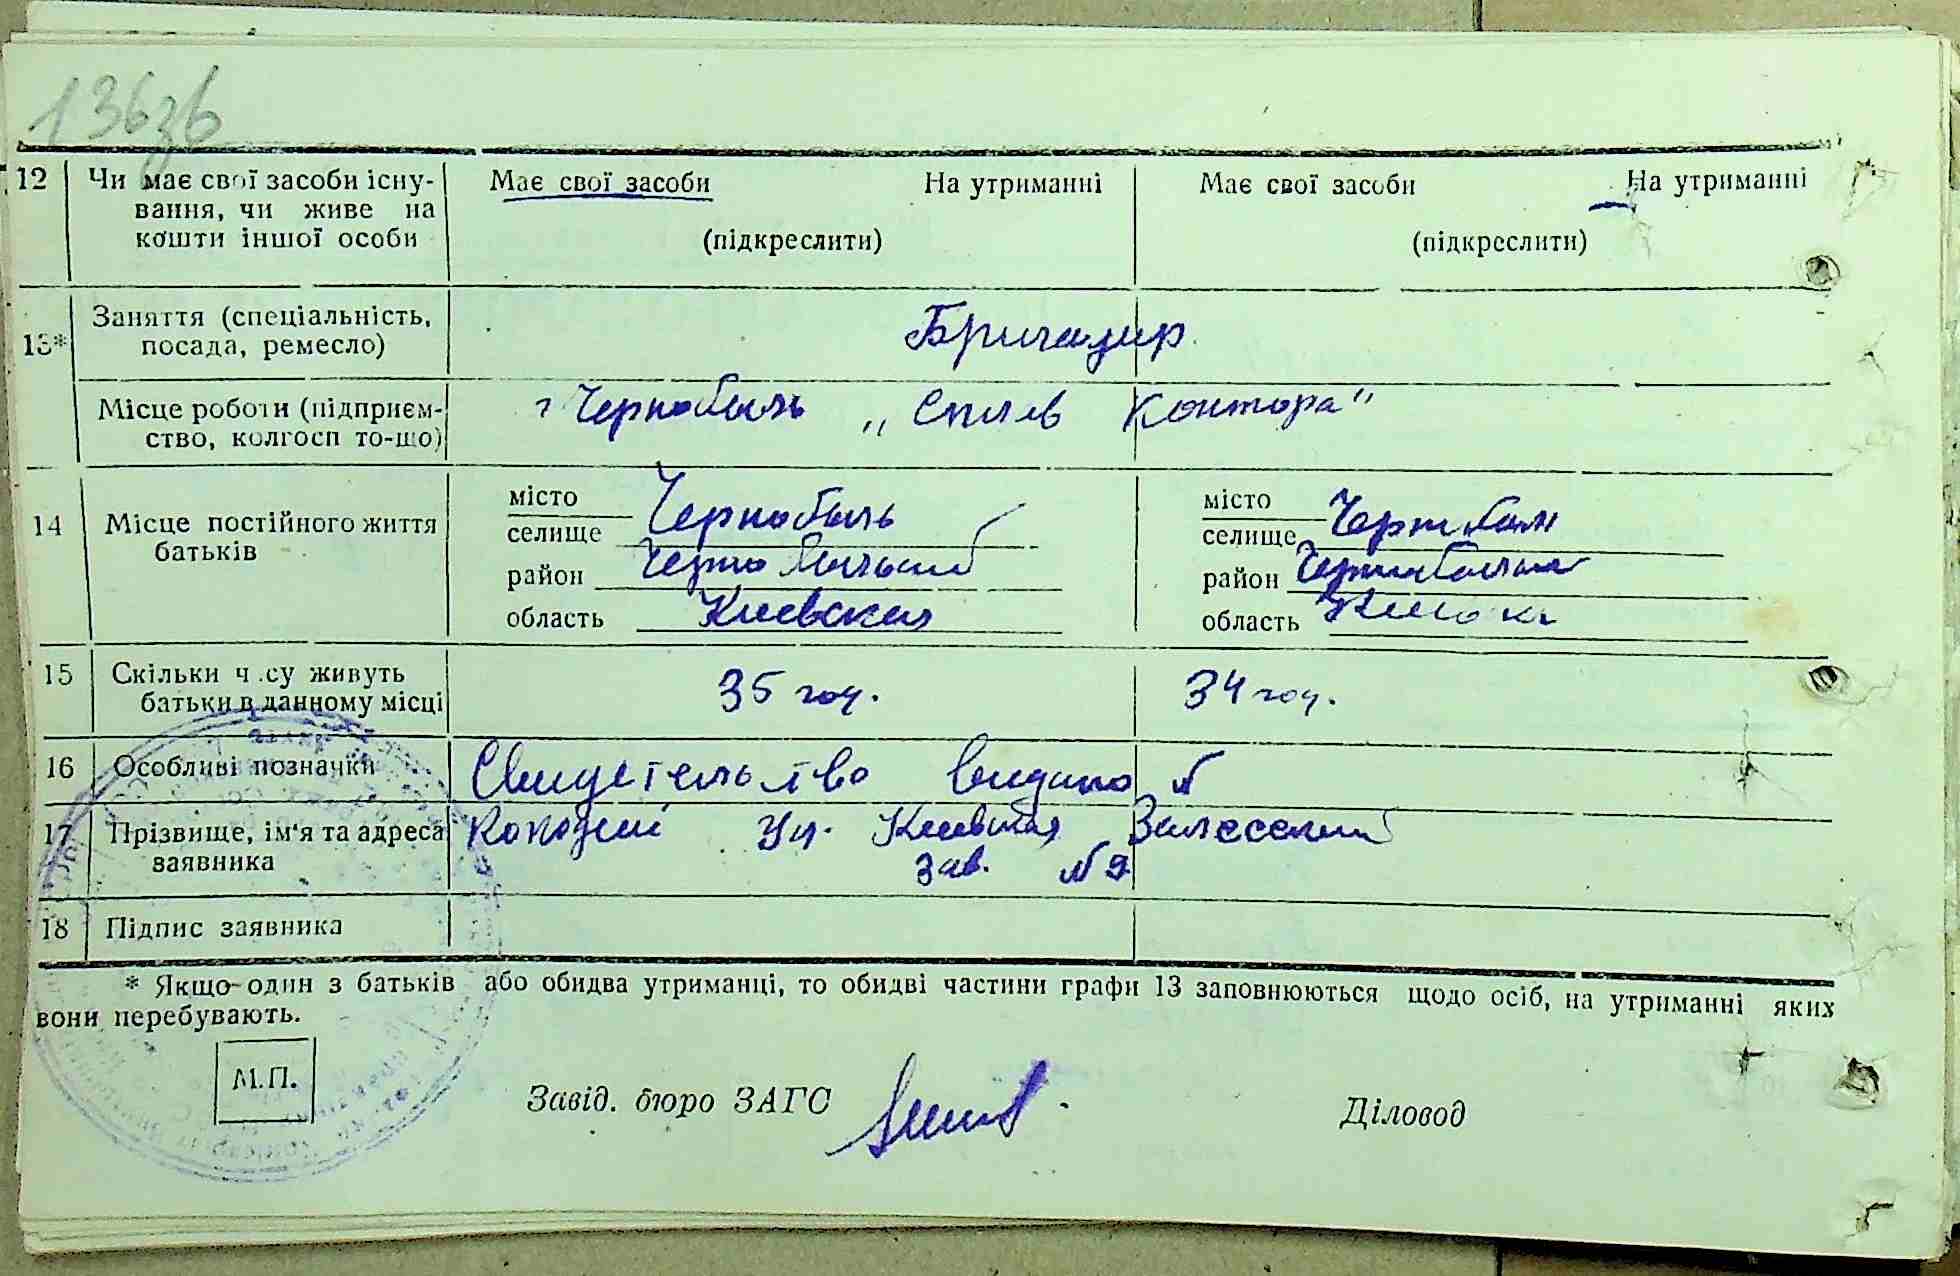 13636
12 Чи має свої засоби існу- Має свої засоби На утриманні Має свої засоби На утриманні
вання, чи живе на
кошти іншої особи (підкреслити) (підкреслити)
13* Заняття (спеціальність, Бригадир
посада, ремесло)
Місце роботи (підприєм- г Чернобыль „Сплав Контора"
ство, колгосп то-що)
14 Місце постійного життя місто Чернобыль місто Чернобыль
батьків селище селище
район район
область Киевская область
15 Скільки ч.су живуть 35 год. 34 год.
батьки в данному місці
16 Особливі позначки Свидетельство видано №
17 Прізвище, ім'я та адреса Ул. Киевская
заявника зав. № 9
18 Підпис заявника
* Якщо один з батьків або обидва утриманці, то обидві частини графи 13 заповнюються щодо осіб, на утриманні яких
вони перебувають.
М.П.
Завід. бюро ЗАГС Діловод